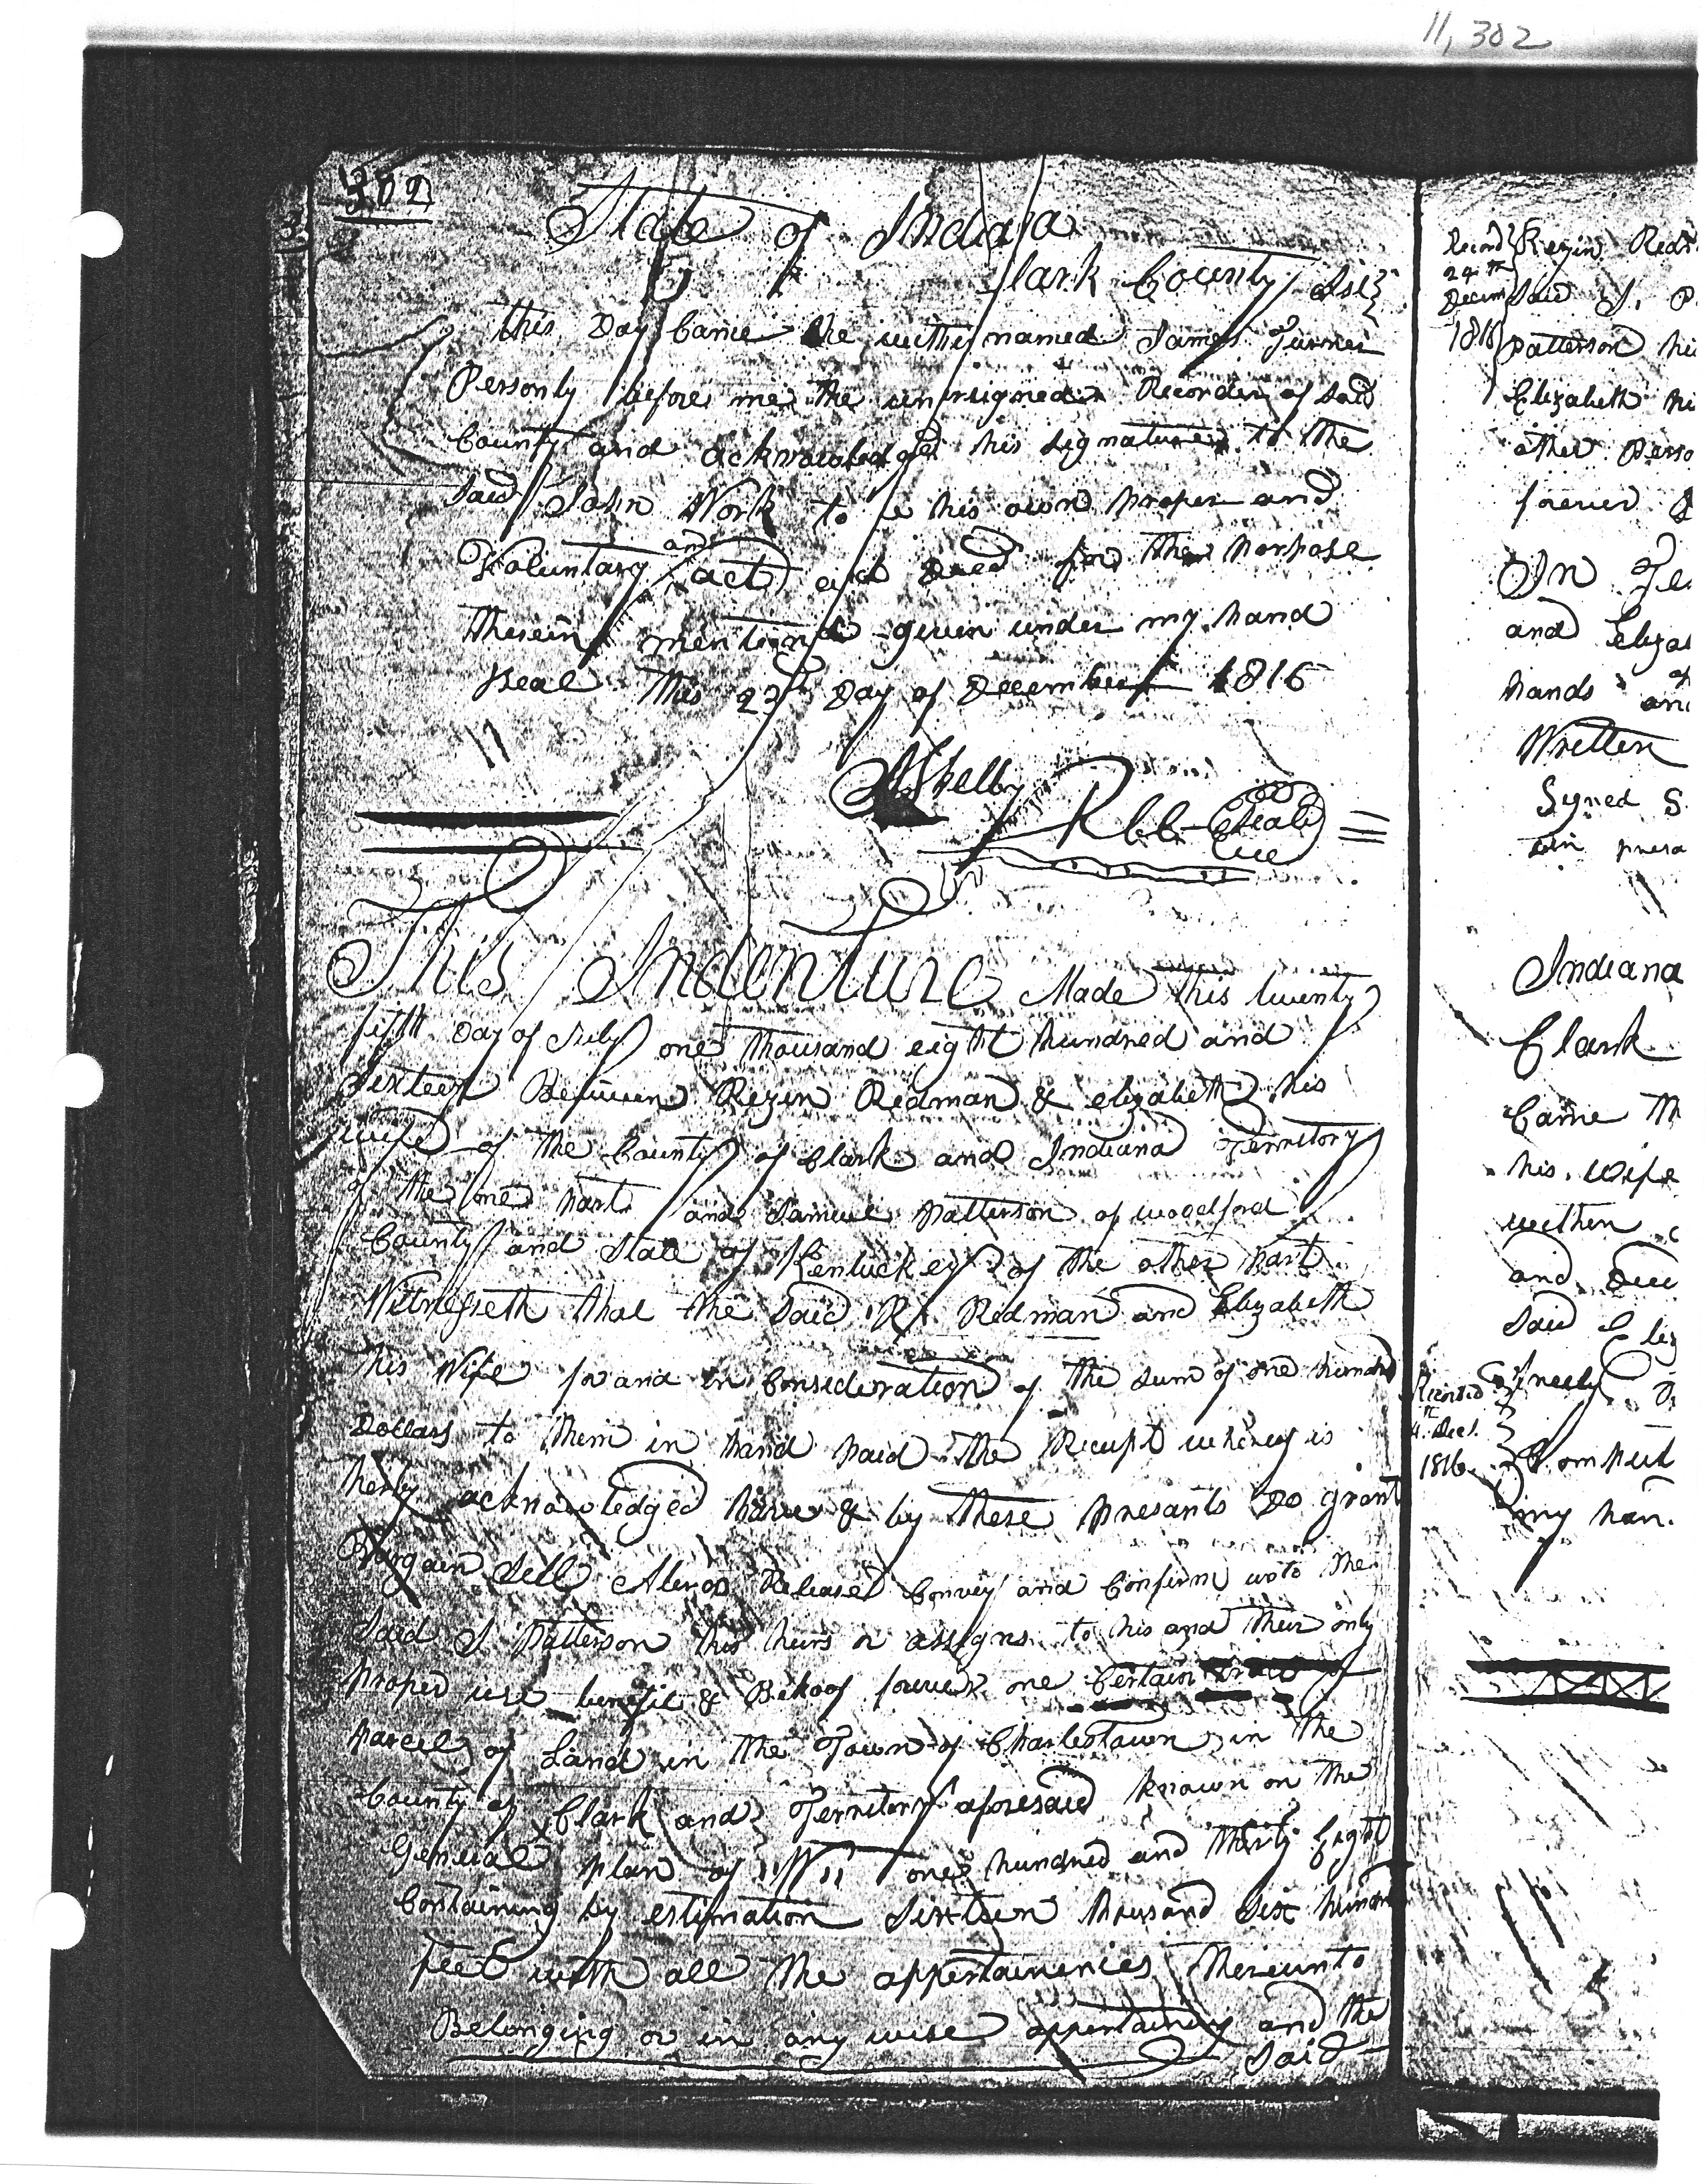 11, 302
302
State of Indiana
Clark County Sst
this Day Came the within named James Turner
Personly before me the undersigned Recorder of said
County and acknowledged his signature to the
said John Work to be his own proper and
Voluntary and act and Deed for the Porpose
therein mentioned given under my hand
Seal this 23 Day of December 1816
Shelby
R C C Seal
This Indenture Made this twenty
fifth Day of July one thousand eight hundred and
Sixteen Between Rezin Redman & elizabeth his
wife of the County of Clark and Indiana Territory
of the one part and Samuel Patterson of woodford
County and State of Kentuckey of the other part
Witnesseth that the said R. Redman and Elizabeth
his Wife for and in Consideration of the sum of one hundred
Dollars to them in hand paid the Receipt whereof is
herby acknowledged have & by these presants Do grant
Bargain Sell Alien Release Convey and Confirm unto the
said S Patterson his heirs or assigns to his and their only
proper use benefit & Behoof forever one Certain
parcel of Land in the Town of Charlestown in the
County of Clark and Territory aforesaid known on the
General plan of one hundred and thirty Eight
Containing by estimation Sixteen thousand Six hundred
feet with all the appertainencies thereunto
Belonging or in any wise appertaining and the
said
Record Rezin Redm
24th
Decem said S. P
1816 Patterson his
Elizabeth hi
other Perso
forever
In Te
and Eliza
hands and
Written
Signed S
in presa
Indiana
Clark
Came th
his wife
within
and Dee
said Eliz
Recorded freely
Dec.
1816 Compul
my han